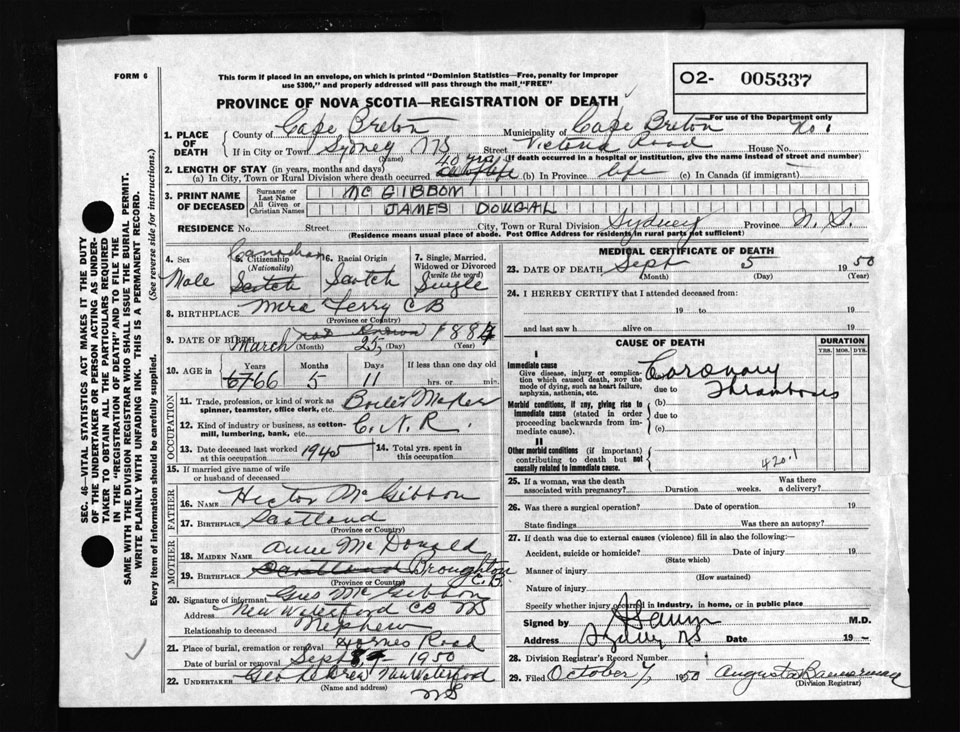 FORM 6
This form if placed in an envelope, on which is printed "Dominion Statistics—Free, penalty for improper
use $300," and properly addressed will pass through the mail "FREE"
02- 005337
For use of the Department only
PROVINCE OF NOVA SCOTIA—REGISTRATION OF DEATH
No 1
1. PLACE OF DEATH
County of Cape Breton Municipality of Cape Breton
If in City or Town Sydney NS Street Victoria Road House No.
(Name) (If death occurred in a hospital or institution, give the name instead of street and number)
2. LENGTH OF STAY (in years, months and days)
40 yrs
(a) In City, Town or Rural Division where death occurred (b) In Province life (c) In Canada (if immigrant)
3. PRINT NAME OF DECEASED
Surname or Last Name MC GIBBOM
All Given or Christian Names JAMES DOUGAL
RESIDENCE No. Street City, Town or Rural Division Sydney Province N. S.
(Residence means usual place of abode. Post Office Address for residents in rural parts not sufficient)
4. Sex Male
5. Citizenship (Nationality) Canadian Scotch
6. Racial Origin Scotch
7. Single, Married, Widowed or Divorced (write the word) Single
8. BIRTHPLACE Mira Ferry C B
(Province or Country)
9. DATE OF BIRTH March 25, 1884
not known
(Month) (Day) (Year)
10. AGE in Years Months Days If less than one day old
67 66 5 11 hrs. or min.
OCCUPATION
11. Trade, profession, or kind of work as spinner, teamster, office clerk, etc. Boiler Maker
12. Kind of industry or business, as cotton-mill, lumbering, bank, etc. C. N. R.
13. Date deceased last worked at this occupation 1945
14. Total yrs. spent in this occupation
15. If married give name of wife or husband of deceased
FATHER
16. NAME Hector McGibbon
17. BIRTHPLACE Scotland
(Province or Country)
MOTHER
18. MAIDEN NAME Annie McDonald
19. BIRTHPLACE Scotland Broughton C.B.
(Province or Country)
20. Signature of informant Gus McGibbon
Address New Waterford CB NS
Relationship to deceased Nephew
21. Place of burial, cremation or removal Road
Date of burial or removal Sept 1950
22. UNDERTAKER New Waterford
(Name and address) NS
MEDICAL CERTIFICATE OF DEATH
23. DATE OF DEATH Sept 5 1950
(Month) (Day)
24. I HEREBY CERTIFY that I attended deceased from:
19 to 19
and last saw h alive on 19
CAUSE OF DEATH
DURATION
YRS. MOS. DYS.
I
Immediate cause
Give disease, injury or complication which caused death, not the mode of dying, such as heart failure, asphyxia, asthenia, etc.
Coronary Thrombosis
due to
Morbid conditions, if any, giving rise to immediate cause (stated in order proceeding backwards from immediate cause).
(b)
due to
(c)
II
Other morbid conditions (if important) contributing to death but not causally related to immediate cause.
420.1
25. If a woman, was the death associated with pregnancy? Duration weeks. Was there a delivery?
26. Was there a surgical operation? Date of operation. 19
State findings Was there an autopsy?
27. If death was due to external causes (violence) fill in also the following:—
Accident, suicide or homicide? Date of injury 19
(State which)
Manner of injury
(How sustained)
Nature of injury
Specify whether injury occurred in industry, in home, or in public place
Signed by M.D.
Address Sydney NS Date 19
28. Division Registrar's Record Number
29. Filed October 7, 1950 Augusta Bannerman
(Division Registrar)
SEC. 46—VITAL STATISTICS ACT MAKES IT THE DUTY
OF THE UNDERTAKER OR PERSON ACTING AS UNDER-
TAKER TO OBTAIN ALL THE PARTICULARS REQUIRED
IN THE "REGISTRATION OF DEATH" AND TO FILE THE
SAME WITH THE DIVISION REGISTRAR WHO SHALL ISSUE THE BURIAL PERMIT.
WRITE PLAINLY WITH UNFADING INK. THIS IS A PERMANENT RECORD.
Every item of information should be carefully supplied. (See reverse side for instructions.)